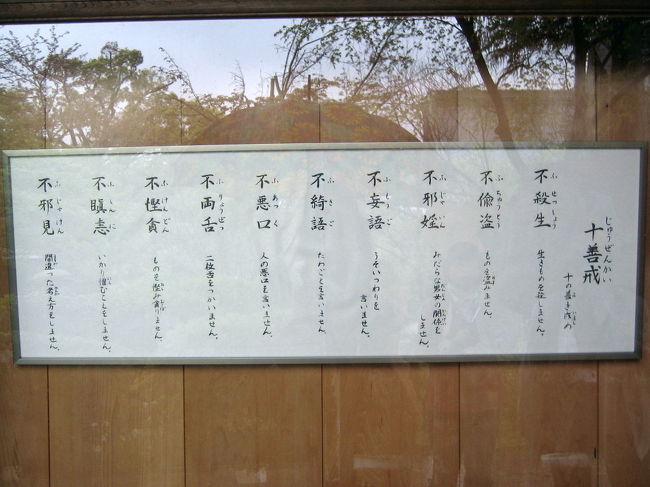 じゅうぜんかい
十善戒
十の善き戒め
いまし
ふせっしょう
不殺生
生きものを殺しません。
ふちゅうとう
不偸盗
ものを盗みません。
ふじゃいん
不邪婬
みだらな男女の関係を
しません。
ふもうご
不妄語
うそいつわりを
言いません。
ふきご
不綺語
たわごとを言いません。
ふあっく
不悪口
人の悪口を言いません。
ふりょうぜつ
不両舌
二枚舌をつかいません。
ふけんどん
不慳貪
ものを慳み貪りません。
ふしんに
不瞋恚
いかり憎むことをしません。
ふじゃけん
不邪見
間違った考え方をしません。